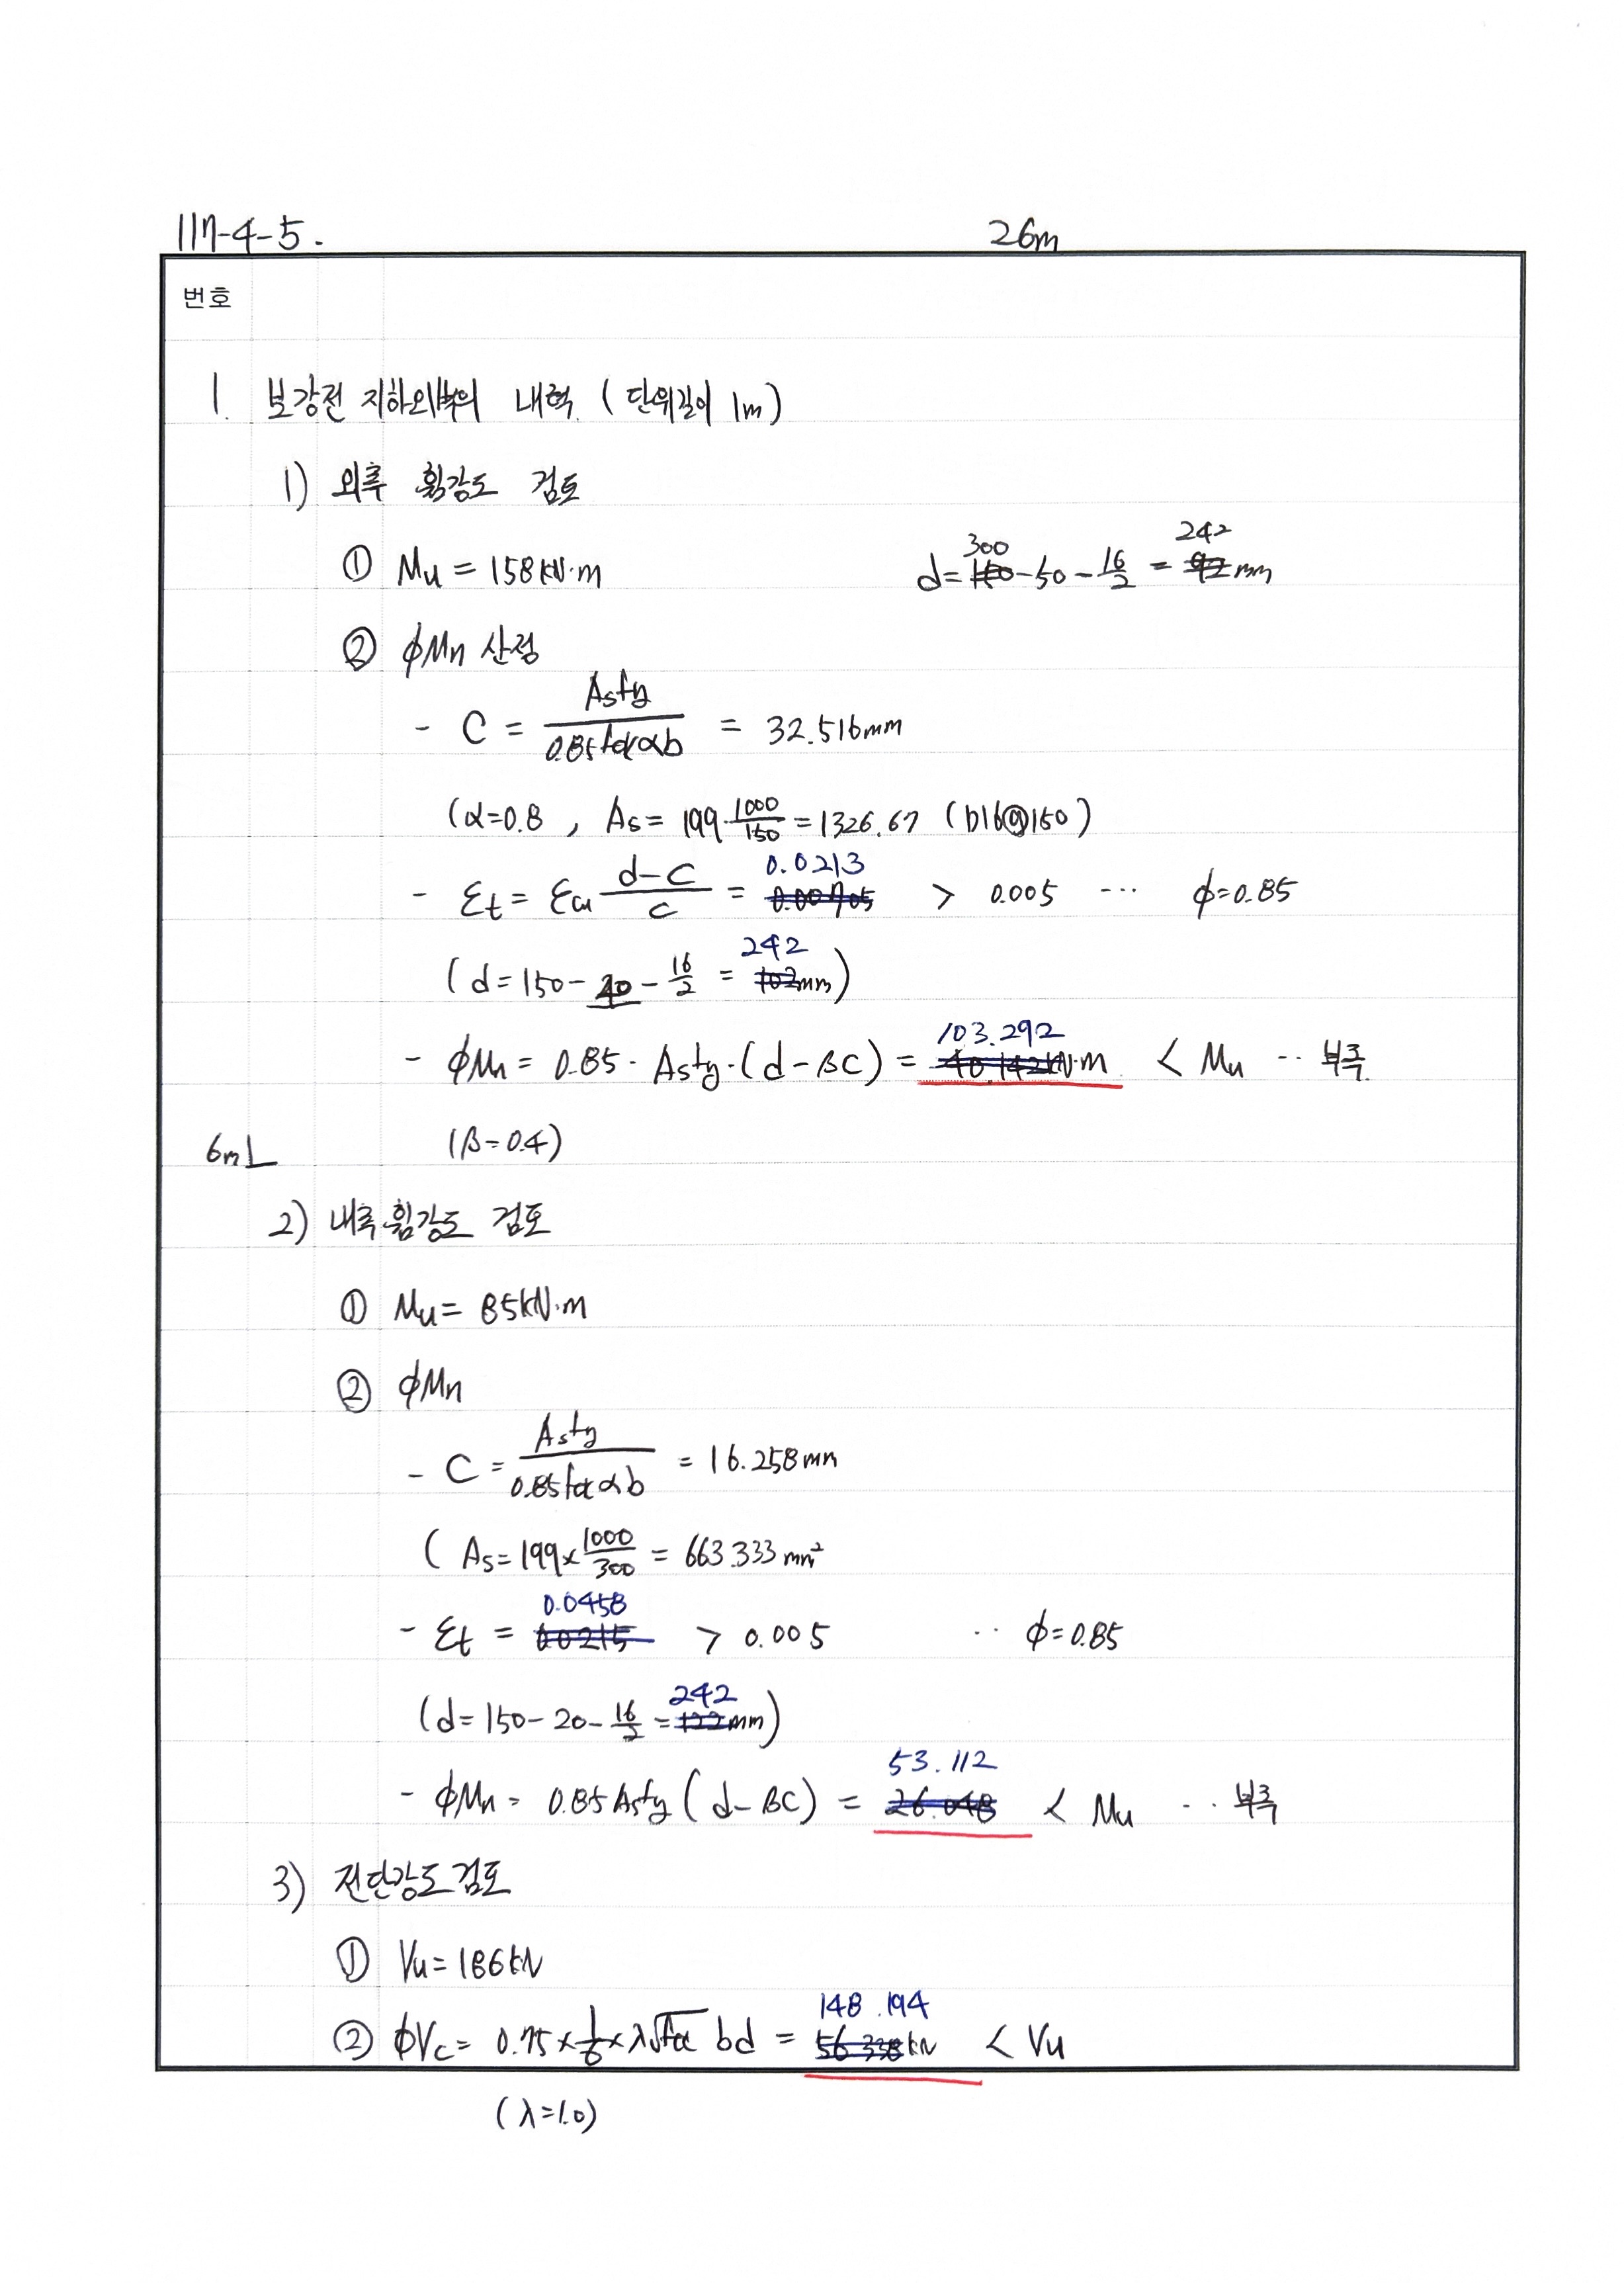 117-4-5. 26m
번호
1. 보강전 지하외벽의 내력 (단위길이 1m)
1) 외측 휨강도 검토
① Mu = 158kN·m d = 150 300 - 50 - 16/2 = 92 242 mm
② φMn 산정
- C = Asfy / 0.85fckαb = 32.516mm
(α=0.8 , As = 199·1000/150 = 1326.67 (D16@150)
- εt = εcu (d-c)/c = 0.00705 0.0213 > 0.005 ··· φ=0.85
(d = 150 - 40 - 16/2 = 102 242 mm)
- φMn = 0.85 · Asfy·(d-βC) = 40.142 103.292 kN·m < Mu ·· 부족
6m (β=0.4)
2) 내측휨강도 검토
① Mu = 85kN·m
② φMn
- C = Asfy / 0.85fckαb = 16.258mm
( As = 199 × 1000/300 = 663.333 mm²
- εt = 0.0215 0.0458 > 0.005 ·· φ=0.85
(d = 150 - 20 - 16/2 = 122 242 mm)
- φMn = 0.85 Asfy (d-βC) = 26.048 53.112 < Mu ·· 부족
3) 전단강도검토
① Vu = 186kN
② φVc = 0.75 × 1/6 × λ√fck bd = 56.338 148.194 kN < Vu
(λ=1.0)